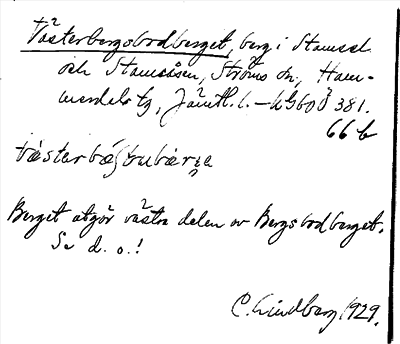 Västerbergsbodberget, berg i Stamsel
och Stamsåsen, Ströms sn, Ham-
merdals tg, Jämtl. l. –
66 b
Berget utgör västra delen av Bergsbodberget.
Se d. o.!
C. Lindberg 1929.